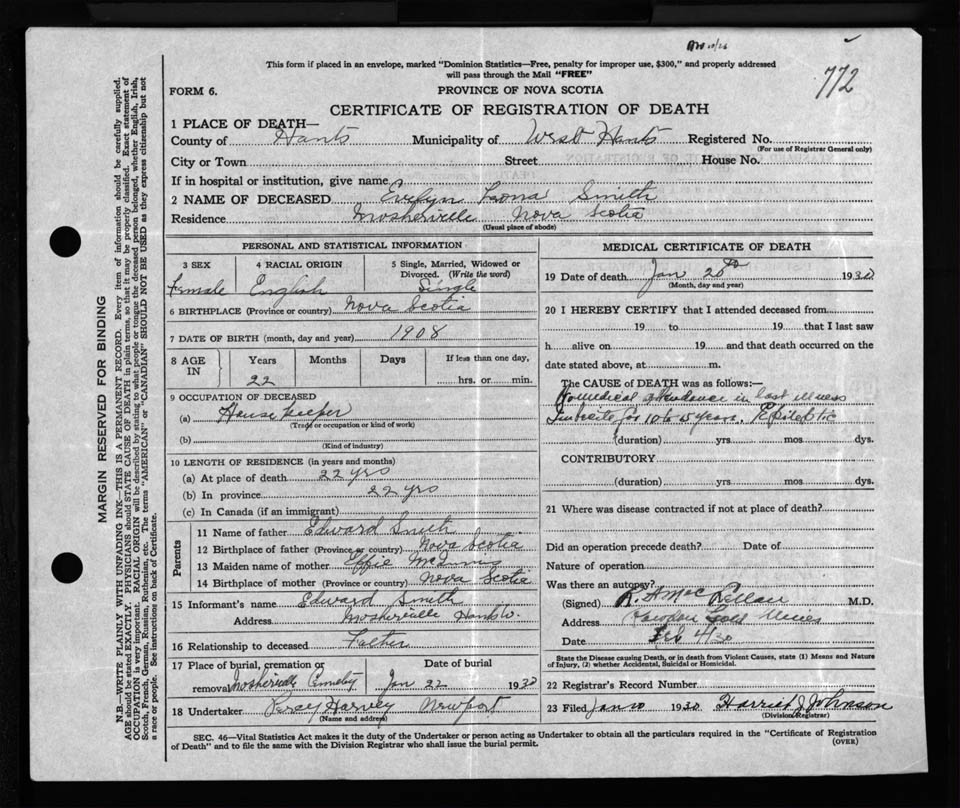 772
This form if placed in an envelope, marked "Dominion Statistics—Free, penalty for improper use, $300," and properly addressed
will pass through the Mail "FREE"
FORM 6.
PROVINCE OF NOVA SCOTIA
CERTIFICATE OF REGISTRATION OF DEATH
1 PLACE OF DEATH—
County of Hants Municipality of West Hants Registered No.
(For use of Registrar General only)
City or Town Street House No.
If in hospital or institution, give name
2 NAME OF DECEASED Evelyn Leona Smith
Residence Mosherville Nova Scotia
(Usual place of abode)
PERSONAL AND STATISTICAL INFORMATION
3 SEX
Female
4 RACIAL ORIGIN
English
5 Single, Married, Widowed or
Divorced. (Write the word)
Single
6 BIRTHPLACE (Province or country) Nova Scotia
7 DATE OF BIRTH (month, day and year) 1908
8 AGE IN
Years Months Days If less than one day,
22 hrs. or min.
9 OCCUPATION OF DECEASED
(a) House keeper
(Trade or occupation or kind of work)
(b)
(Kind of industry)
10 LENGTH OF RESIDENCE (in years and months)
(a) At place of death 22 yrs
(b) In province 22 yrs
(c) In Canada (if an immigrant)
Parents
11 Name of father Edward Smith
12 Birthplace of father (Province or country) Nova Scotia
13 Maiden name of mother Effie McInnis
14 Birthplace of mother (Province or country) Nova Scotia
15 Informant's name Edward Smith
Address Mosherville Hants Co.
16 Relationship to deceased Father
17 Place of burial, cremation or Date of burial
removal Mosherville Cemetery Jan 22 1930
18 Undertaker Percy Harvey Newport
(Name and address)
MEDICAL CERTIFICATE OF DEATH
19 Date of death Jan 20th 1930
(Month, day and year)
20 I HEREBY CERTIFY that I attended deceased from
19 to 19 that I last saw
h alive on 19 and that death occurred on the
date stated above, at m.
The CAUSE of DEATH was as follows:—
No medical attendance in last illness
Imbecile for 10 to 15 years. Epileptic
(duration) yrs. mos. dys.
CONTRIBUTORY
(duration) yrs. mos. dys.
21 Where was disease contracted if not at place of death?
Did an operation precede death? Date of
Nature of operation
Was there an autopsy?
(Signed) R. A MacLellan M.D.
Address Rawdon Gold Mines
Date Feb 4/30
State the Disease causing Death, or in death from Violent Causes, state (1) Means and Nature
of Injury, (2) whether Accidental, Suicidal or Homicidal.
22 Registrar's Record Number
23 Filed Jan 1930 Harriet J Johnson
(Division Registrar)
SEC. 46—Vital Statistics Act makes it the duty of the Undertaker or person acting as Undertaker to obtain all the particulars required in the "Certificate of Registration
of Death" and to file the same with the Division Registrar who shall issue the burial permit.
(OVER)
MARGIN RESERVED FOR BINDING
N.B.—WRITE PLAINLY WITH UNFADING INK—THIS IS A PERMANENT RECORD. Every item of information should be carefully supplied.
AGE should be stated EXACTLY. PHYSICIANS should STATE CAUSE OF DEATH in plain terms, so that it may be properly classified. Exact statement of
OCCUPATION is very important. RACIAL ORIGIN will be described by stating to what people or tongue the deceased person belonged, whether English, Irish,
Scotch, French, German, Russian, Ruthenian, etc. The terms "AMERICAN" or "CANADIAN" SHOULD NOT BE USED as they express citizenship but not
a race or people. See instructions on back of Certificate.